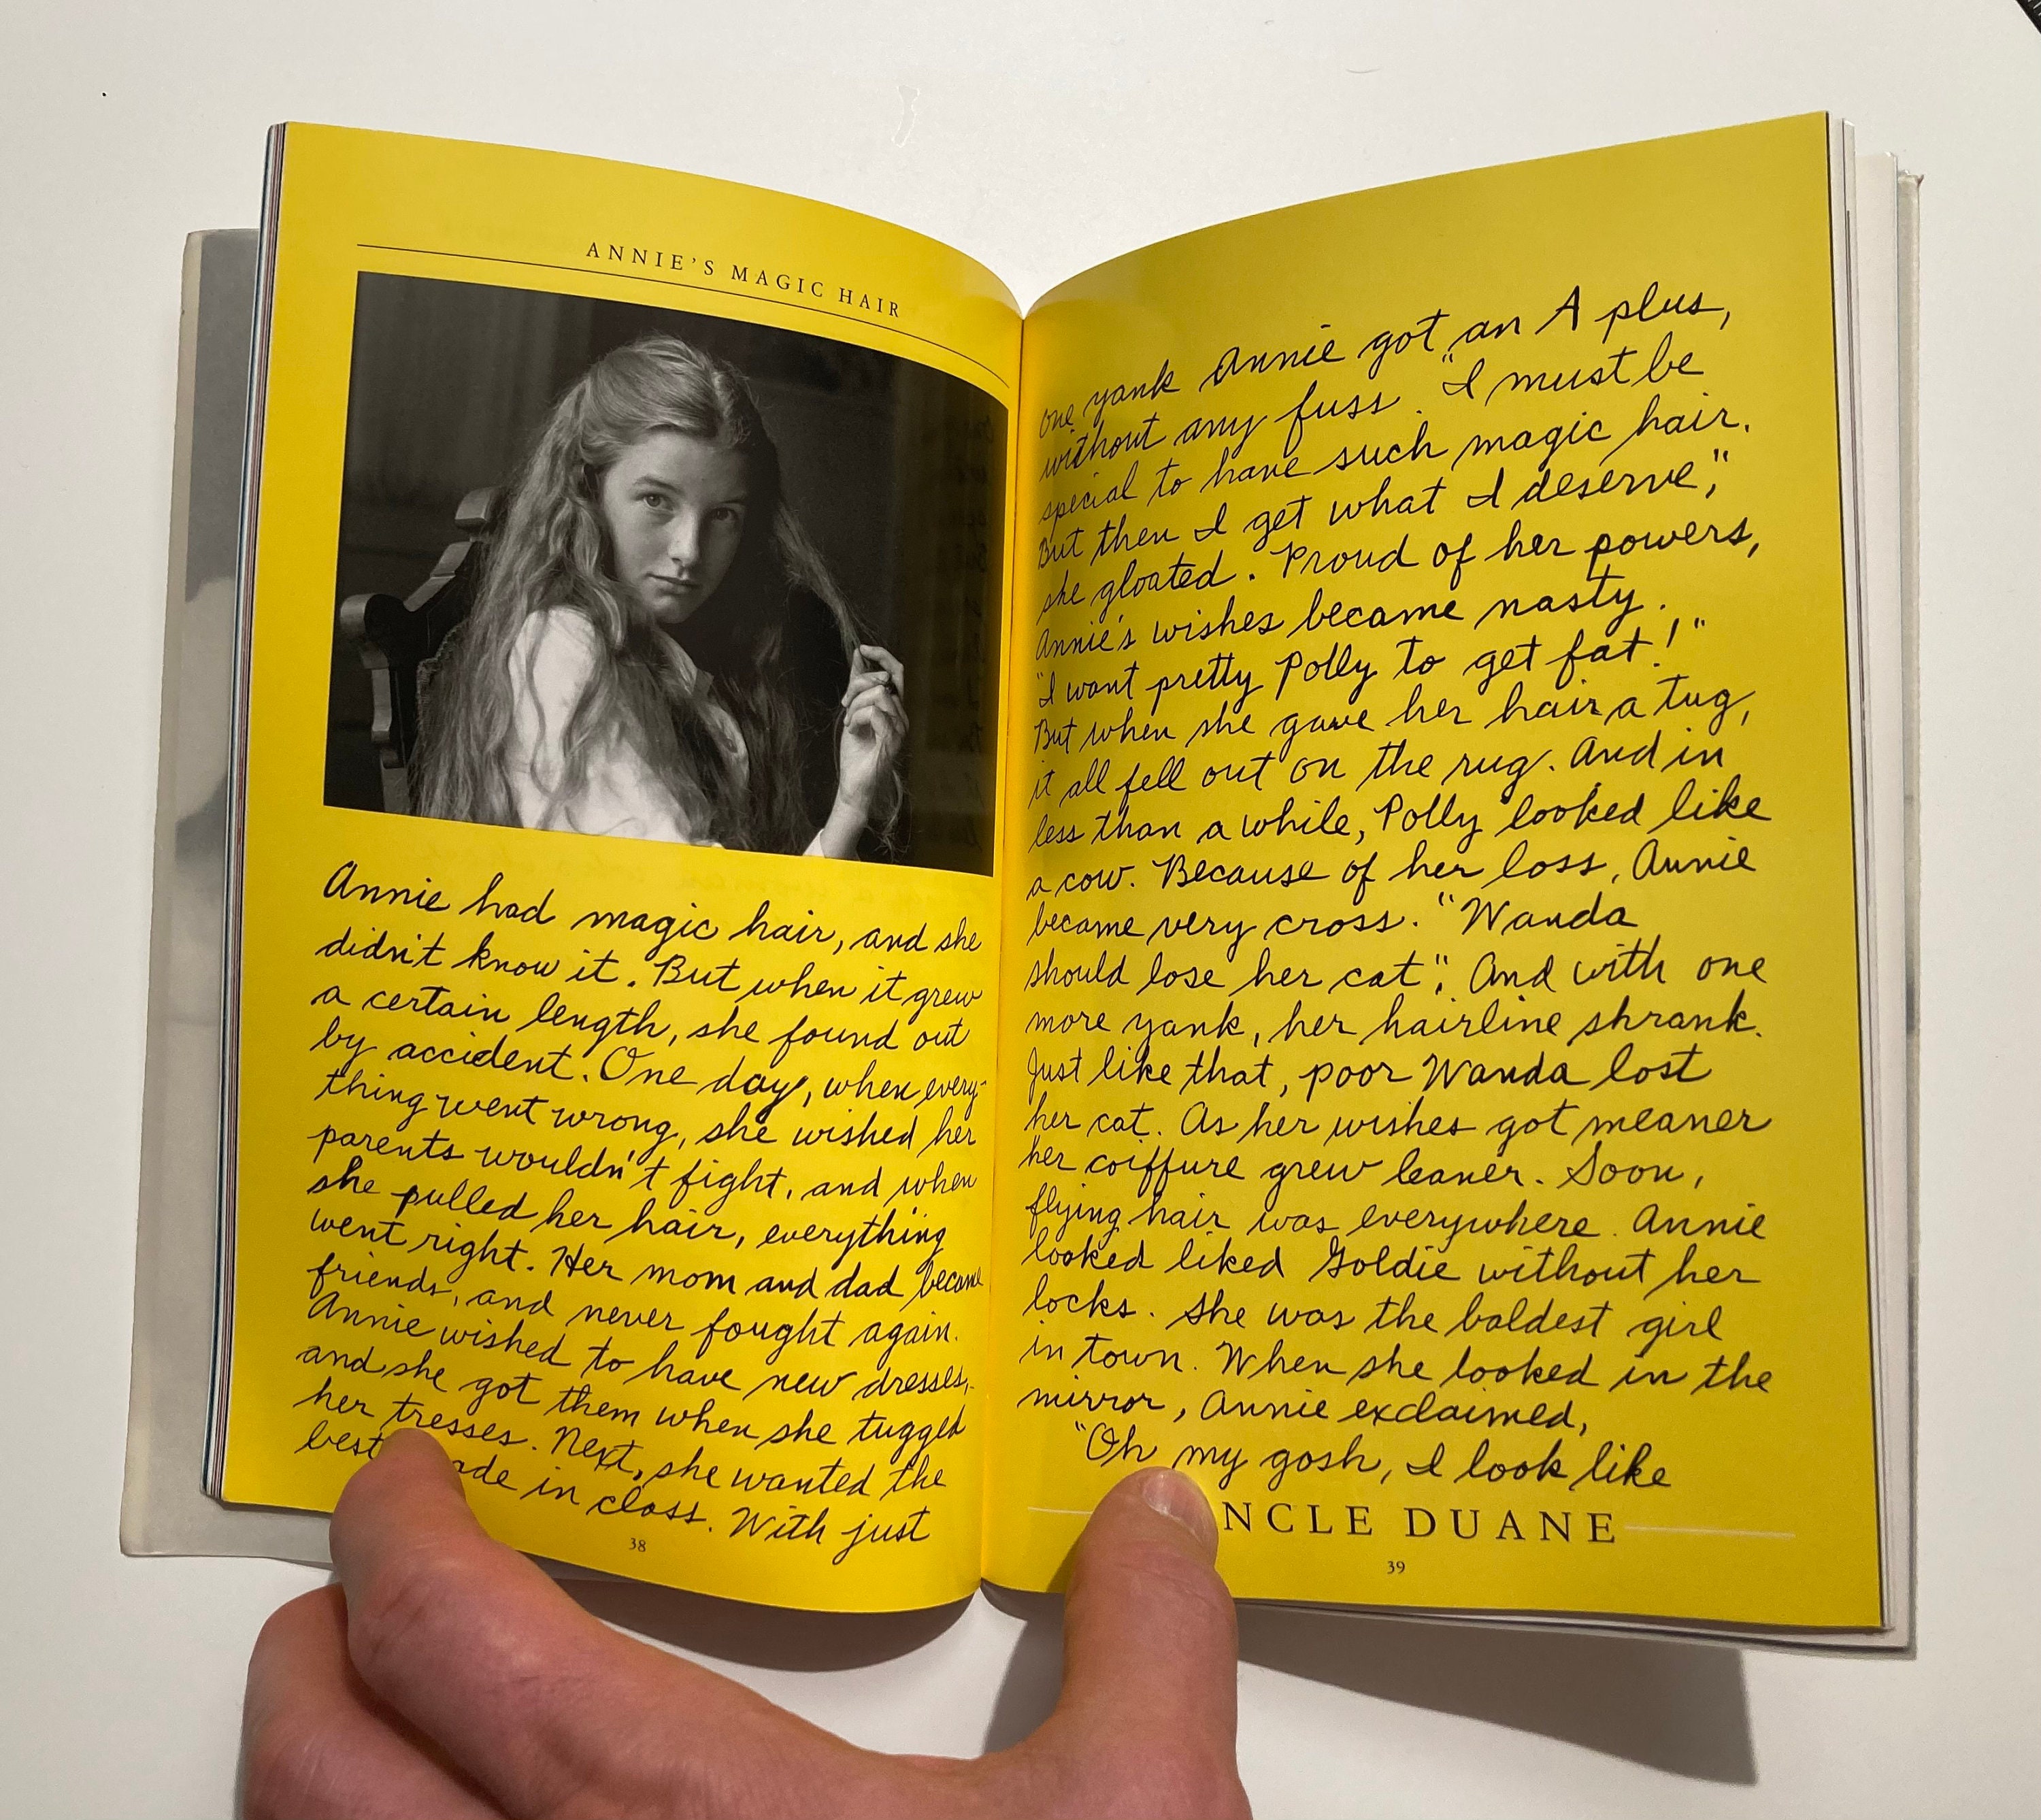 ANNIE'S MAGIC HAIR
Annie had magic hair, and she
didn't know it. But when it grew
a certain length, she found out
by accident. One day, when every-
thing went wrong, she wished her
parents wouldn't fight, and when
she pulled her hair, everything
went right. Her mom and dad became
friends, and never fought again.
Annie wished to have new dresses,
and she got them when she tugged
her tresses. Next, she wanted the
best ade in class. With just
38
one yank Annie got an A plus,
without any fuss. "I must be
special to have such magic hair.
But then I get what I deserve",
she gloated. Proud of her powers,
Annie's wishes became nasty.
"I want pretty Polly to get fat!"
But when she gave her hair a tug,
it all fell out on the rug. And in
less than a while, Polly looked like
a cow. Because of her loss, Annie
became very cross. "Wanda
should lose her cat". And with one
more yank, her hairline shrank.
Just like that, poor Wanda lost
her cat. As her wishes got meaner
her coiffure grew leaner. Soon,
flying hair was everywhere. Annie
looked liked Goldie without her
locks. She was the baldest girl
in town. When she looked in the
mirror, Annie exclaimed,
"Oh my gosh, I look like
NCLE DUANE
39